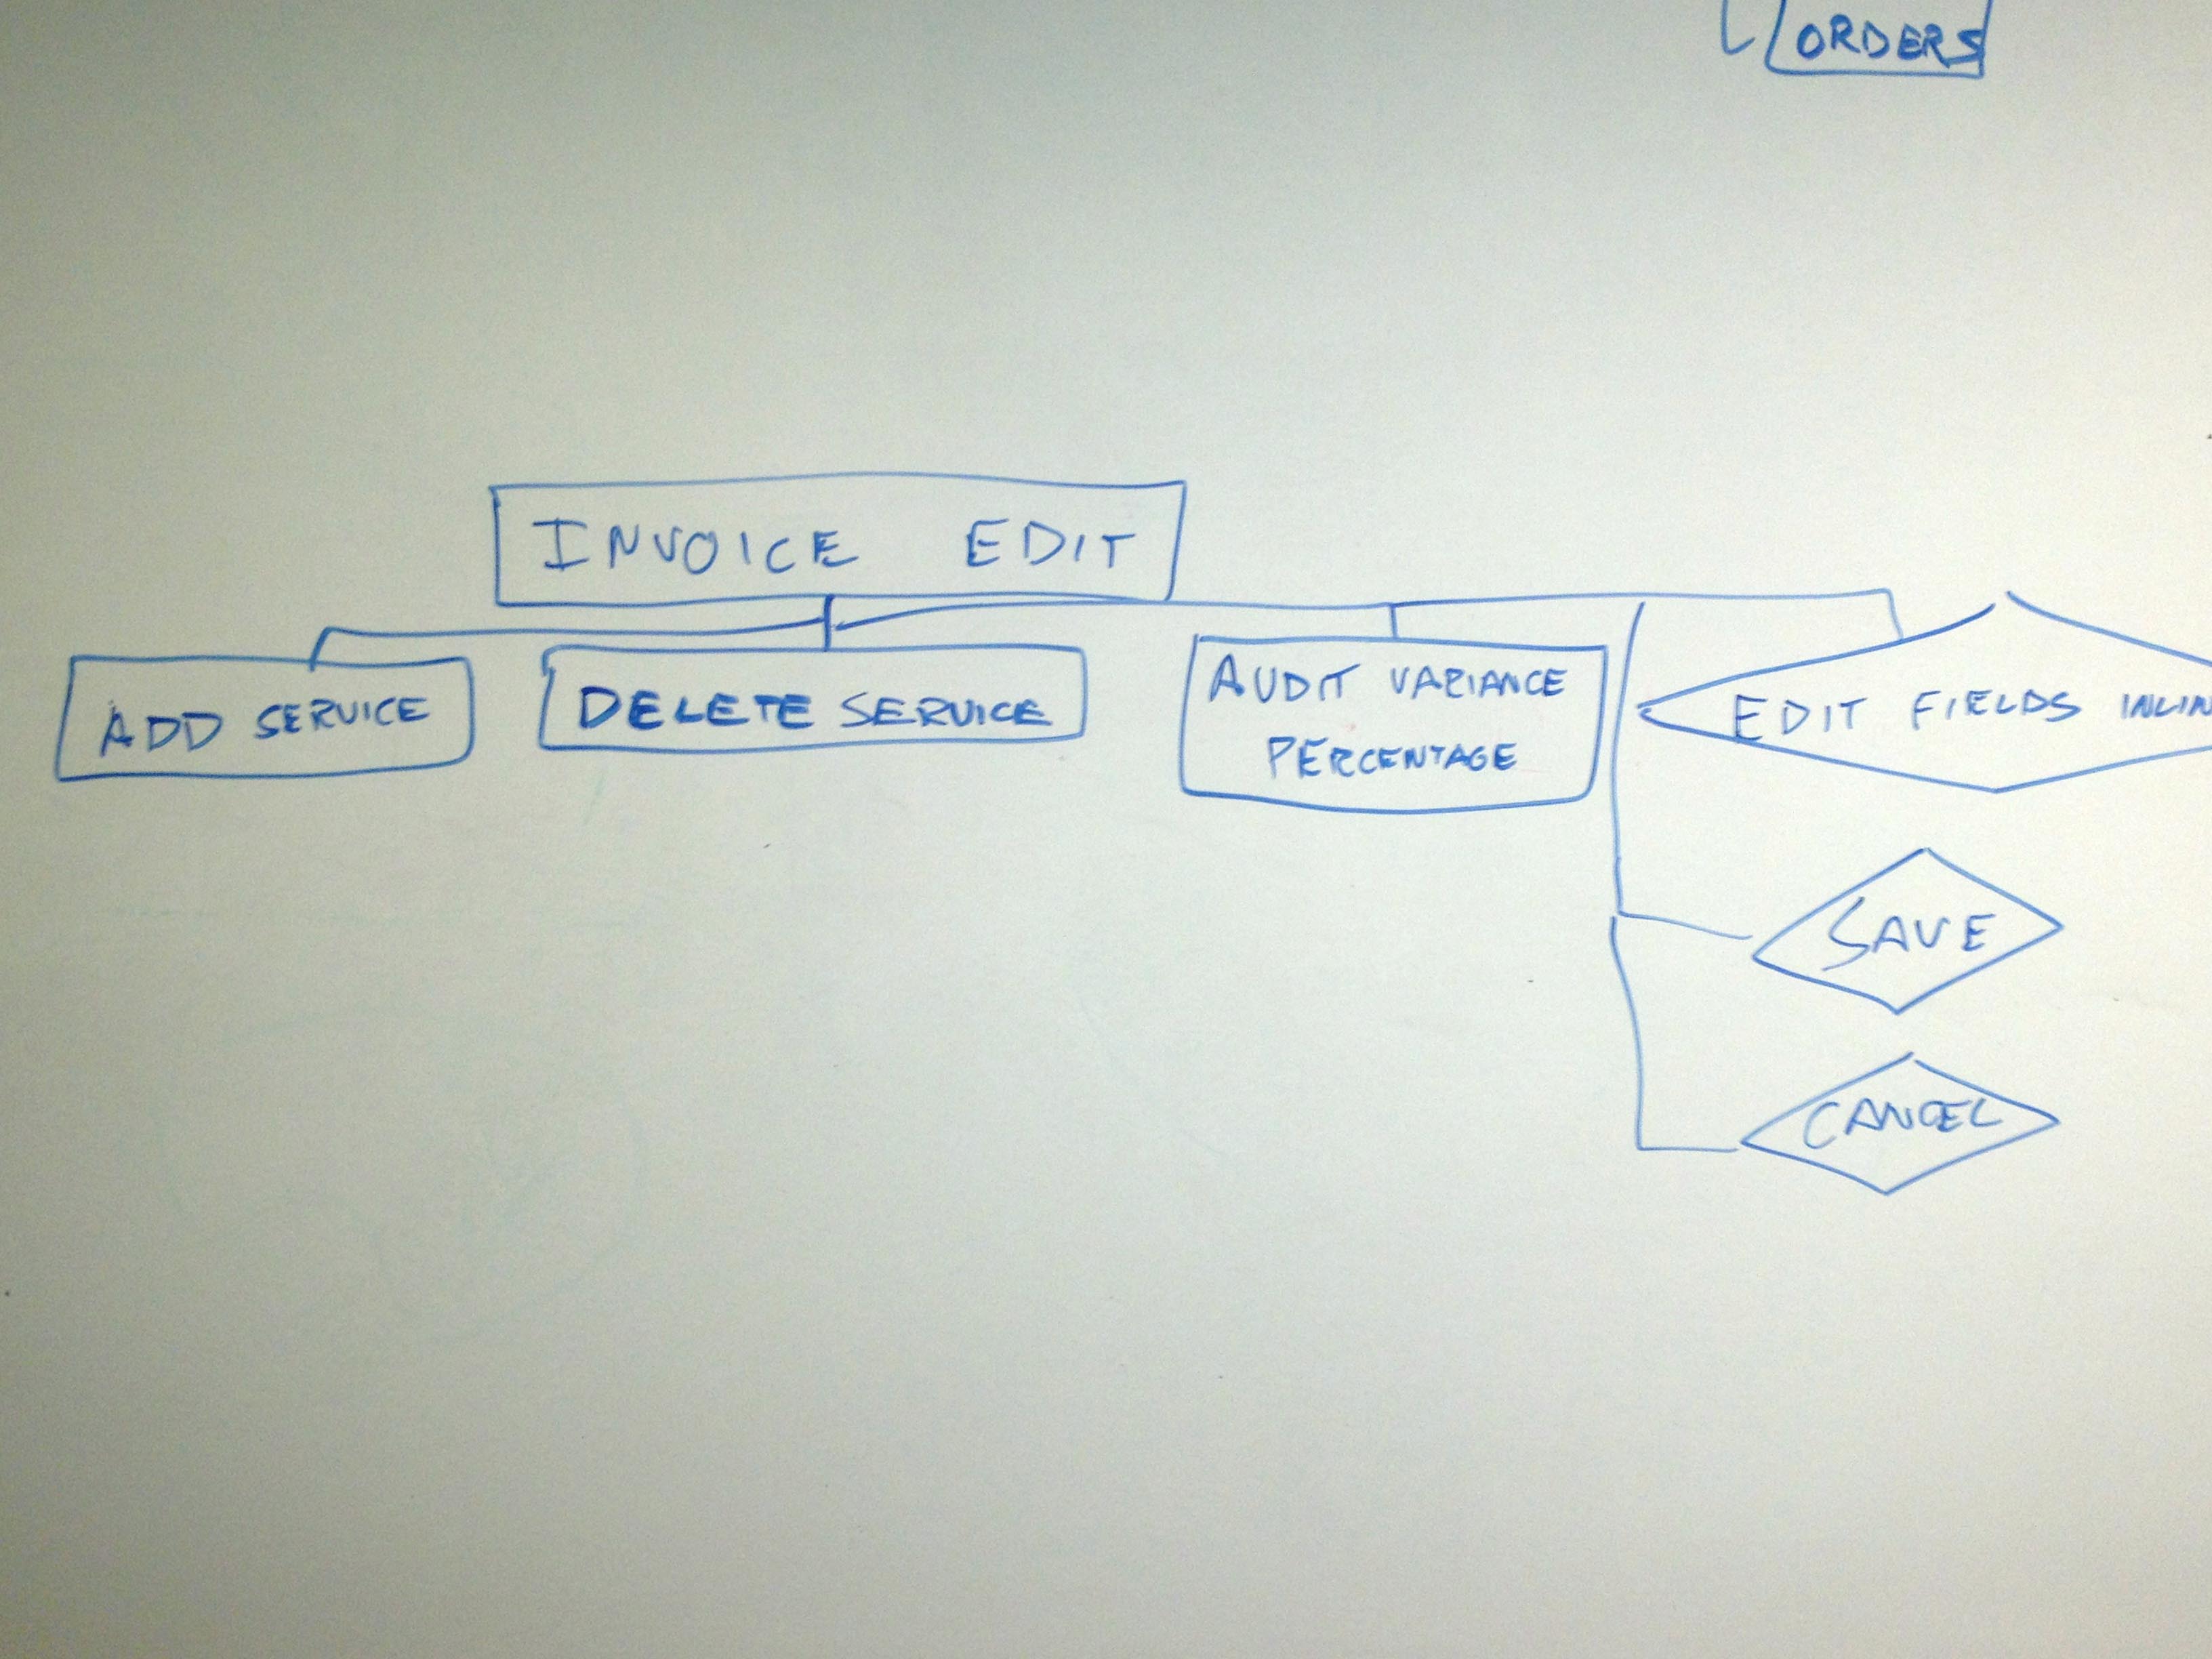 ORDERS
INVOICE EDIT
ADD SERVICE
DELETE SERVICE
AUDIT VARIANCE
PERCENTAGE
EDIT FIELDS INLIN
SAVE
CANCEL